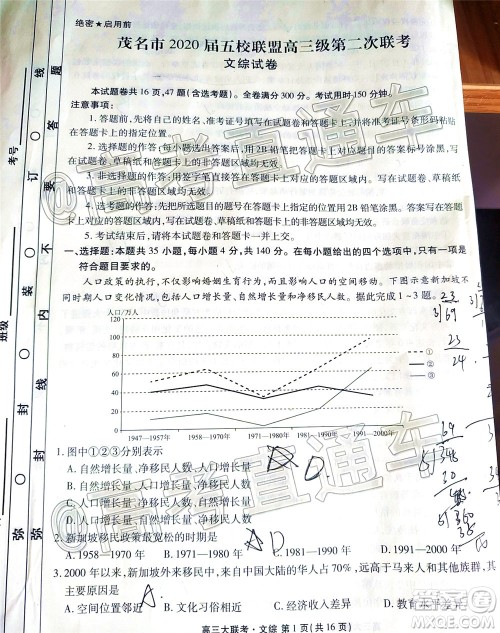 绝密★启用前
茂名市 2020 届五校联盟高三级第二次联考
文综试卷
本试题卷共 16 页,47 题(含选考题)。全卷满分 300 分。考试用时 150 分钟。
注意事项:
1. 答题前,先将自己的姓名、准考证号填写在试题卷和答题卡上,并将准考证号条形码粘贴
在答题卡上的指定位置。
2. 选择题的作答:每小题选出答案后,用 2B 铅笔把答题卡上对应题目的答案标号涂黑。写
在试题卷、草稿纸和答题卡上的非答题区域均无效。
3. 非选择题的作答:用签字笔直接答在答题卡上对应的答题区域内。写在试题卷、草稿纸
和答题卡上的非答题区域均无效。
4. 选考题的作答:先把所选题目的题号在答题卡上指定的位置用 2B 铅笔涂黑。答案写在答
题卡上对应的答题区域内,写在试题卷、草稿纸和答题卡上的非答题区域均无效。
5. 考试结束后,请将本试题卷和答题卡一并上交。
一、选择题:本题共 35 小题,每小题 4 分,共 140 分。在每小题给出的四个选项中,只有一项是
符合题目要求的。
人口政策的执行,不仅影响婚姻生育行为,而且影响人口的空间移动。下图示意新加坡不
同时期人口变化情况,包括人口增长量、自然增长量、净移民人数。据此完成 1~3 题。
人口/万人
120
100
80
60
40
20
0
1947—1957年 1958—1970年 1971—1980年 1981—1990年 1991—2000年
①
②
③
1. 图中①②③分别表示
A. 自然增长量、净移民人数、人口增长量
B. 人口增长量、净移民人数、自然增长量
C. 人口增长量、自然增长量、净移民人数
D. 自然增长量、人口增长量、净移民人数
2. 新加坡移民政策最宽松的时期是
A. 1958—1970 年 B. 1971—1980 年 C. 1981—1990 年 D. 1991—2000 年
3. 2000 年以来,新加坡外来移民中,来自中国大陆的华人占 70%以上,远高于马来人和其他族群,其
主要原因是
A. 空间距离邻近 B. 文化习俗相近 C. 经济收入差异 D. 教育水平差异
高三大联考·文综 第 1 页(共 16 页)
考号
班级
弥 封 线 内 不 要 订 答 题
@高考直通车